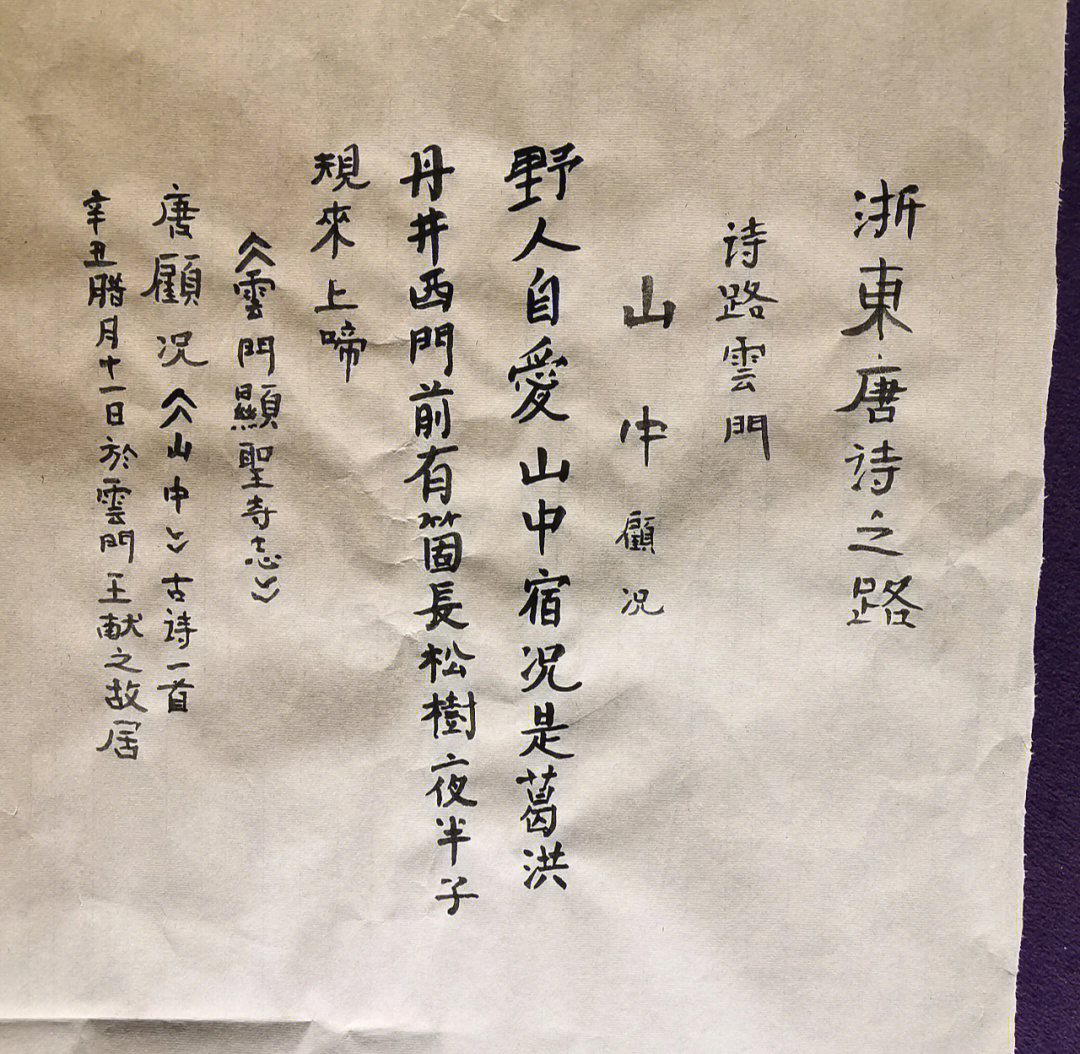 浙東唐詩之路
诗路雲門
山中 顧况
野人自愛山中宿况是葛洪
丹井西門前有箇長松樹夜半子
規來上啼
《雲門顯聖寺志》
唐顧况《山中》古诗一首
辛丑腊月十一日於雲門王献之故居